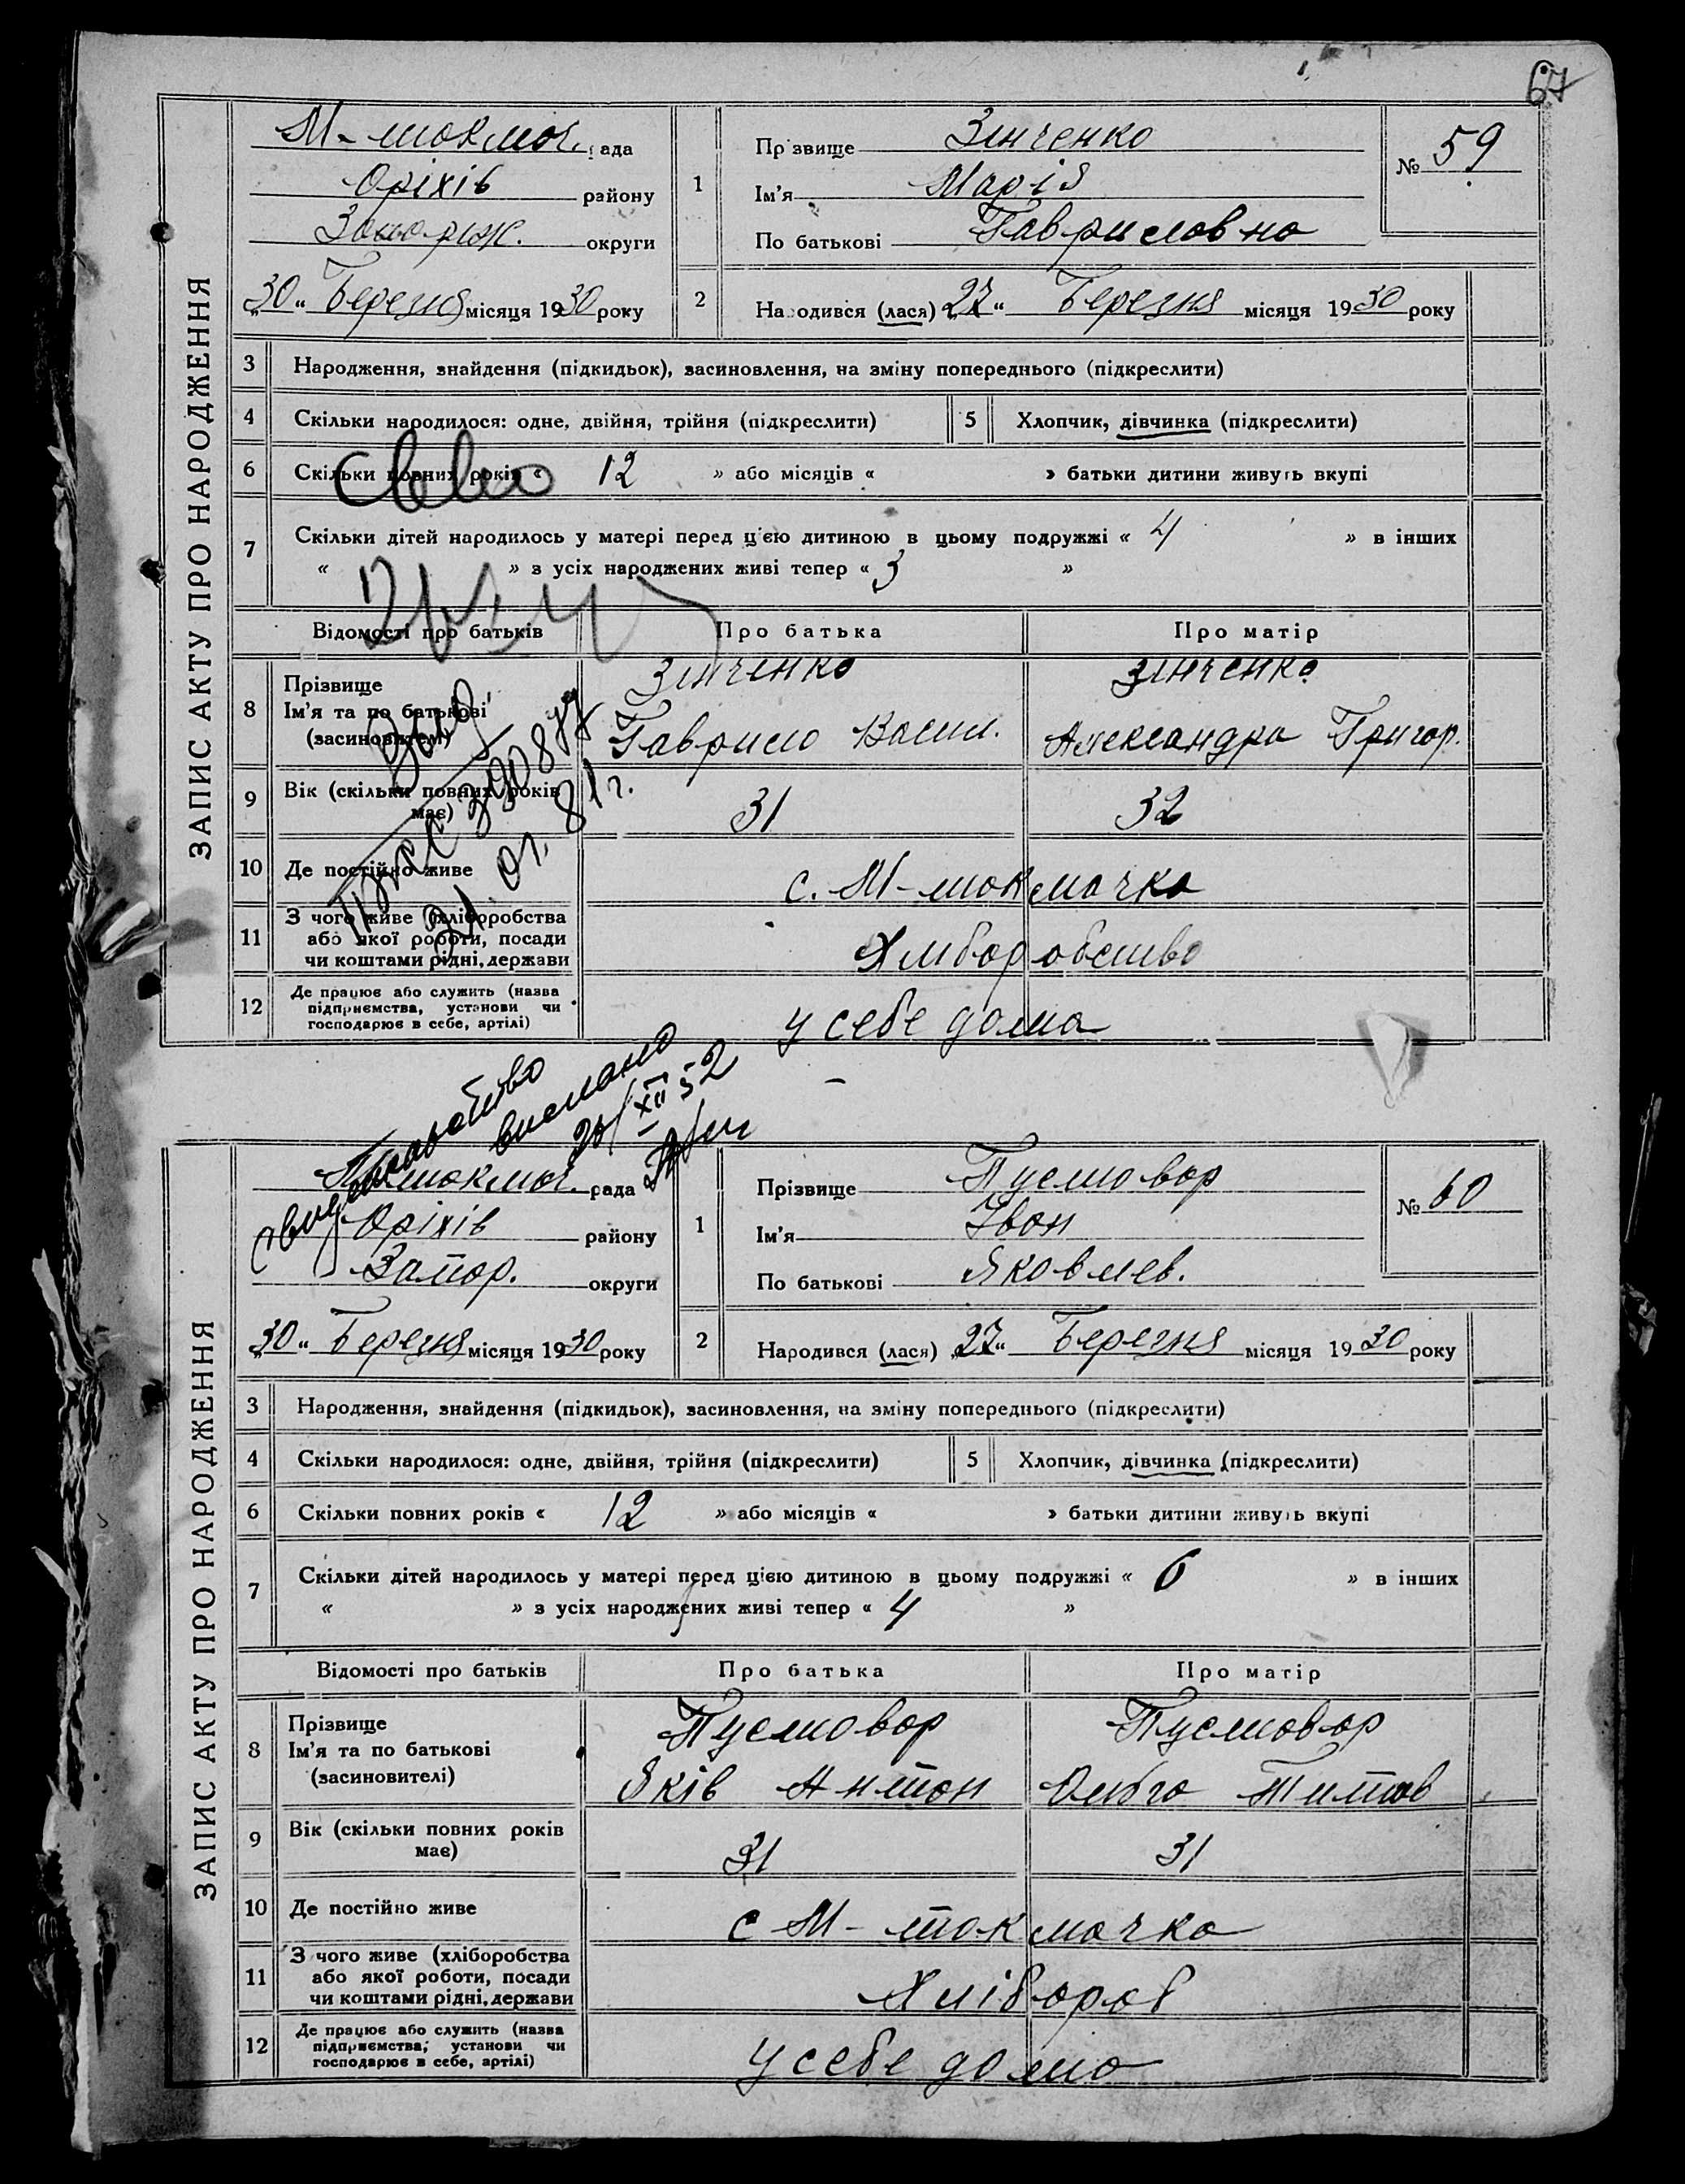 67
ЗАПИС АКТУ ПРО НАРОДЖЕННЯ
М-токмач. рада
Оріхів району
Запоріж. округи
„30“ Березня місяця 1930 року
1 Прізвище Зінченко
Ім'я Марія
По батькові Гавриловна
№ 59
2 Народився (лася) „27“ Березня місяця 1930 року
3 Народження, знайдення (підкидьок), засиновлення, на зміну попереднього (підкреслити)
4 Скільки народилося: одне, двійня, трійня (підкреслити) 5 Хлопчик, дівчинка (підкреслити)
6 Скільки повних років « 12 » або місяців « » батьки дитини живуть вкупі
7 Скільки дітей народилось у матері перед цією дитиною в цьому подружжі « 4 » в інших
« » з усіх народжених живі тепер « 3 »
Відомості про батьків Про батька Про матір
8 Прізвище
Ім'я та по батькові
(засиновителі)
Зінченко Зінченко
Гаврило Васил. Александра Григор.
9 Вік (скільки повних років має) 31 32
10 Де постійно живе с. М-токмачка
11 З чого живе (хліборобства
або якої роботи, посади
чи коштами рідні, держави
Хліборобство
12 Де працює або служить (назва
підприємства, установи чи
господарює в себе, артілі)
у себе дома
390877
21. 01. 81 г.
свидетельство
выслано
XII 52
ЗАПИС АКТУ ПРО НАРОДЖЕННЯ
М-токмач. рада
Оріхів району
Запор. округи
„30“ Березня місяця 1930 року
1 Прізвище Пустовар
Ім'я Іван
По батькові Яковлев.
№ 60
2 Народився (лася) „27“ Березня місяця 1930 року
3 Народження, знайдення (підкидьок), засиновлення, на зміну попереднього (підкреслити)
4 Скільки народилося: одне, двійня, трійня (підкреслити) 5 Хлопчик, дівчинка (підкреслити)
6 Скільки повних років « 12 » або місяців « » батьки дитини живуть вкупі
7 Скільки дітей народилось у матері перед цією дитиною в цьому подружжі « 6 » в інших
« » з усіх народжених живі тепер « 4 »
Відомості про батьків Про батька Про матір
8 Прізвище
Ім'я та по батькові
(засиновителі)
Пустовар Пустовар
Яків Антон Ольга Титов
9 Вік (скільки повних років має) 31 31
10 Де постійно живе с М-токмачка
11 З чого живе (хліборобства
або якої роботи, посади
чи коштами рідні, держави
Хлібороб
12 Де працює або служить (назва
підприємства, установи чи
господарює в себе, артілі)
у себе дома